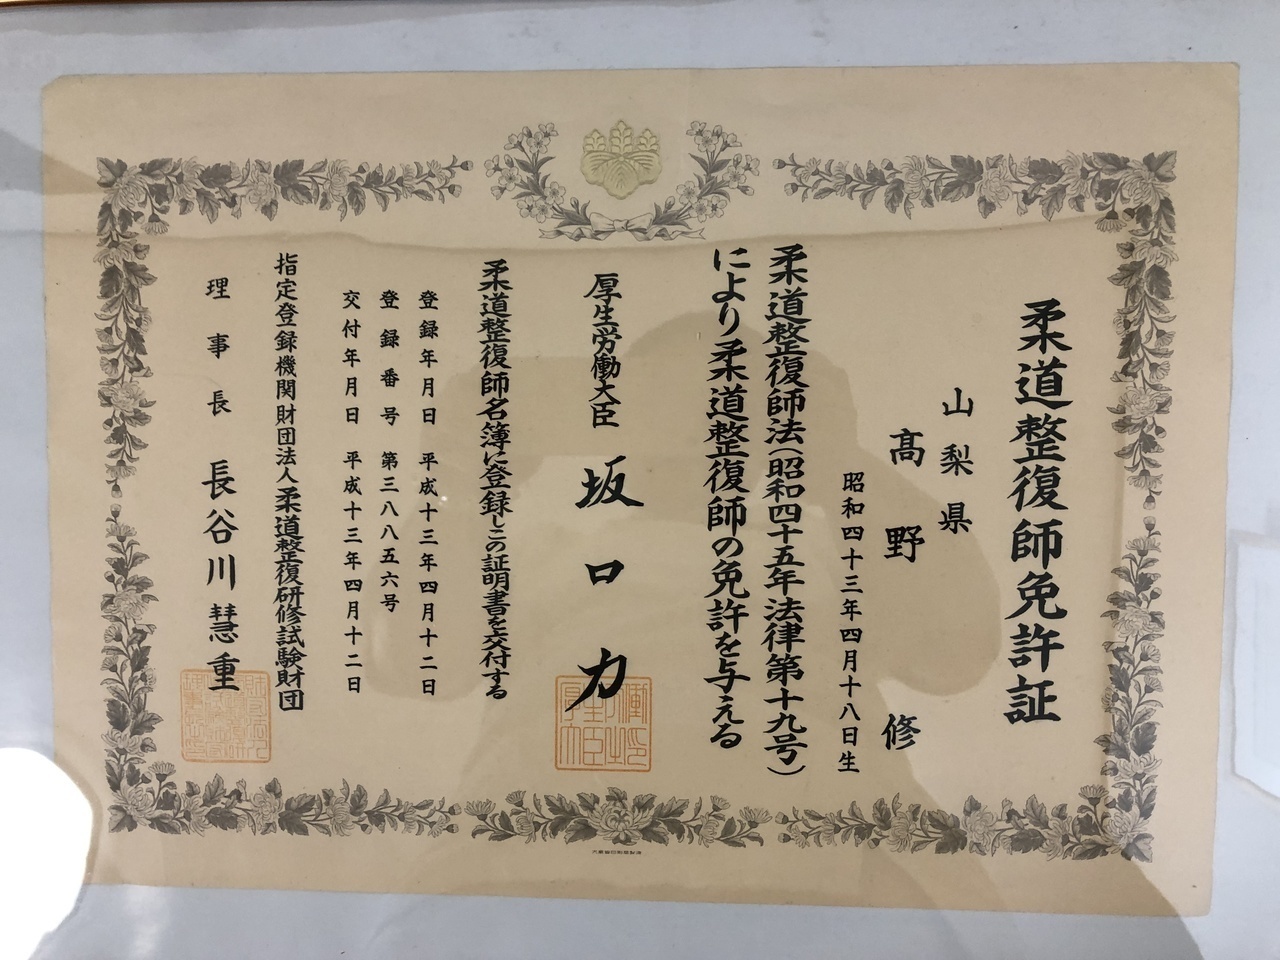 柔道整復師免許証
山梨県
髙野修
昭和四十三年四月十八日生
柔道整復師法（昭和四十五年法律第十九号）
により柔道整復師の免許を与える
厚生労働大臣 坂口力
柔道整復師名簿に登録しこの証明書を交付する
登録年月日 平成十三年四月十二日
登録番号 第三八八五六号
交付年月日 平成十三年四月十二日
指定登録機関財団法人柔道整復研修試験財団
理事長 長谷川慧重